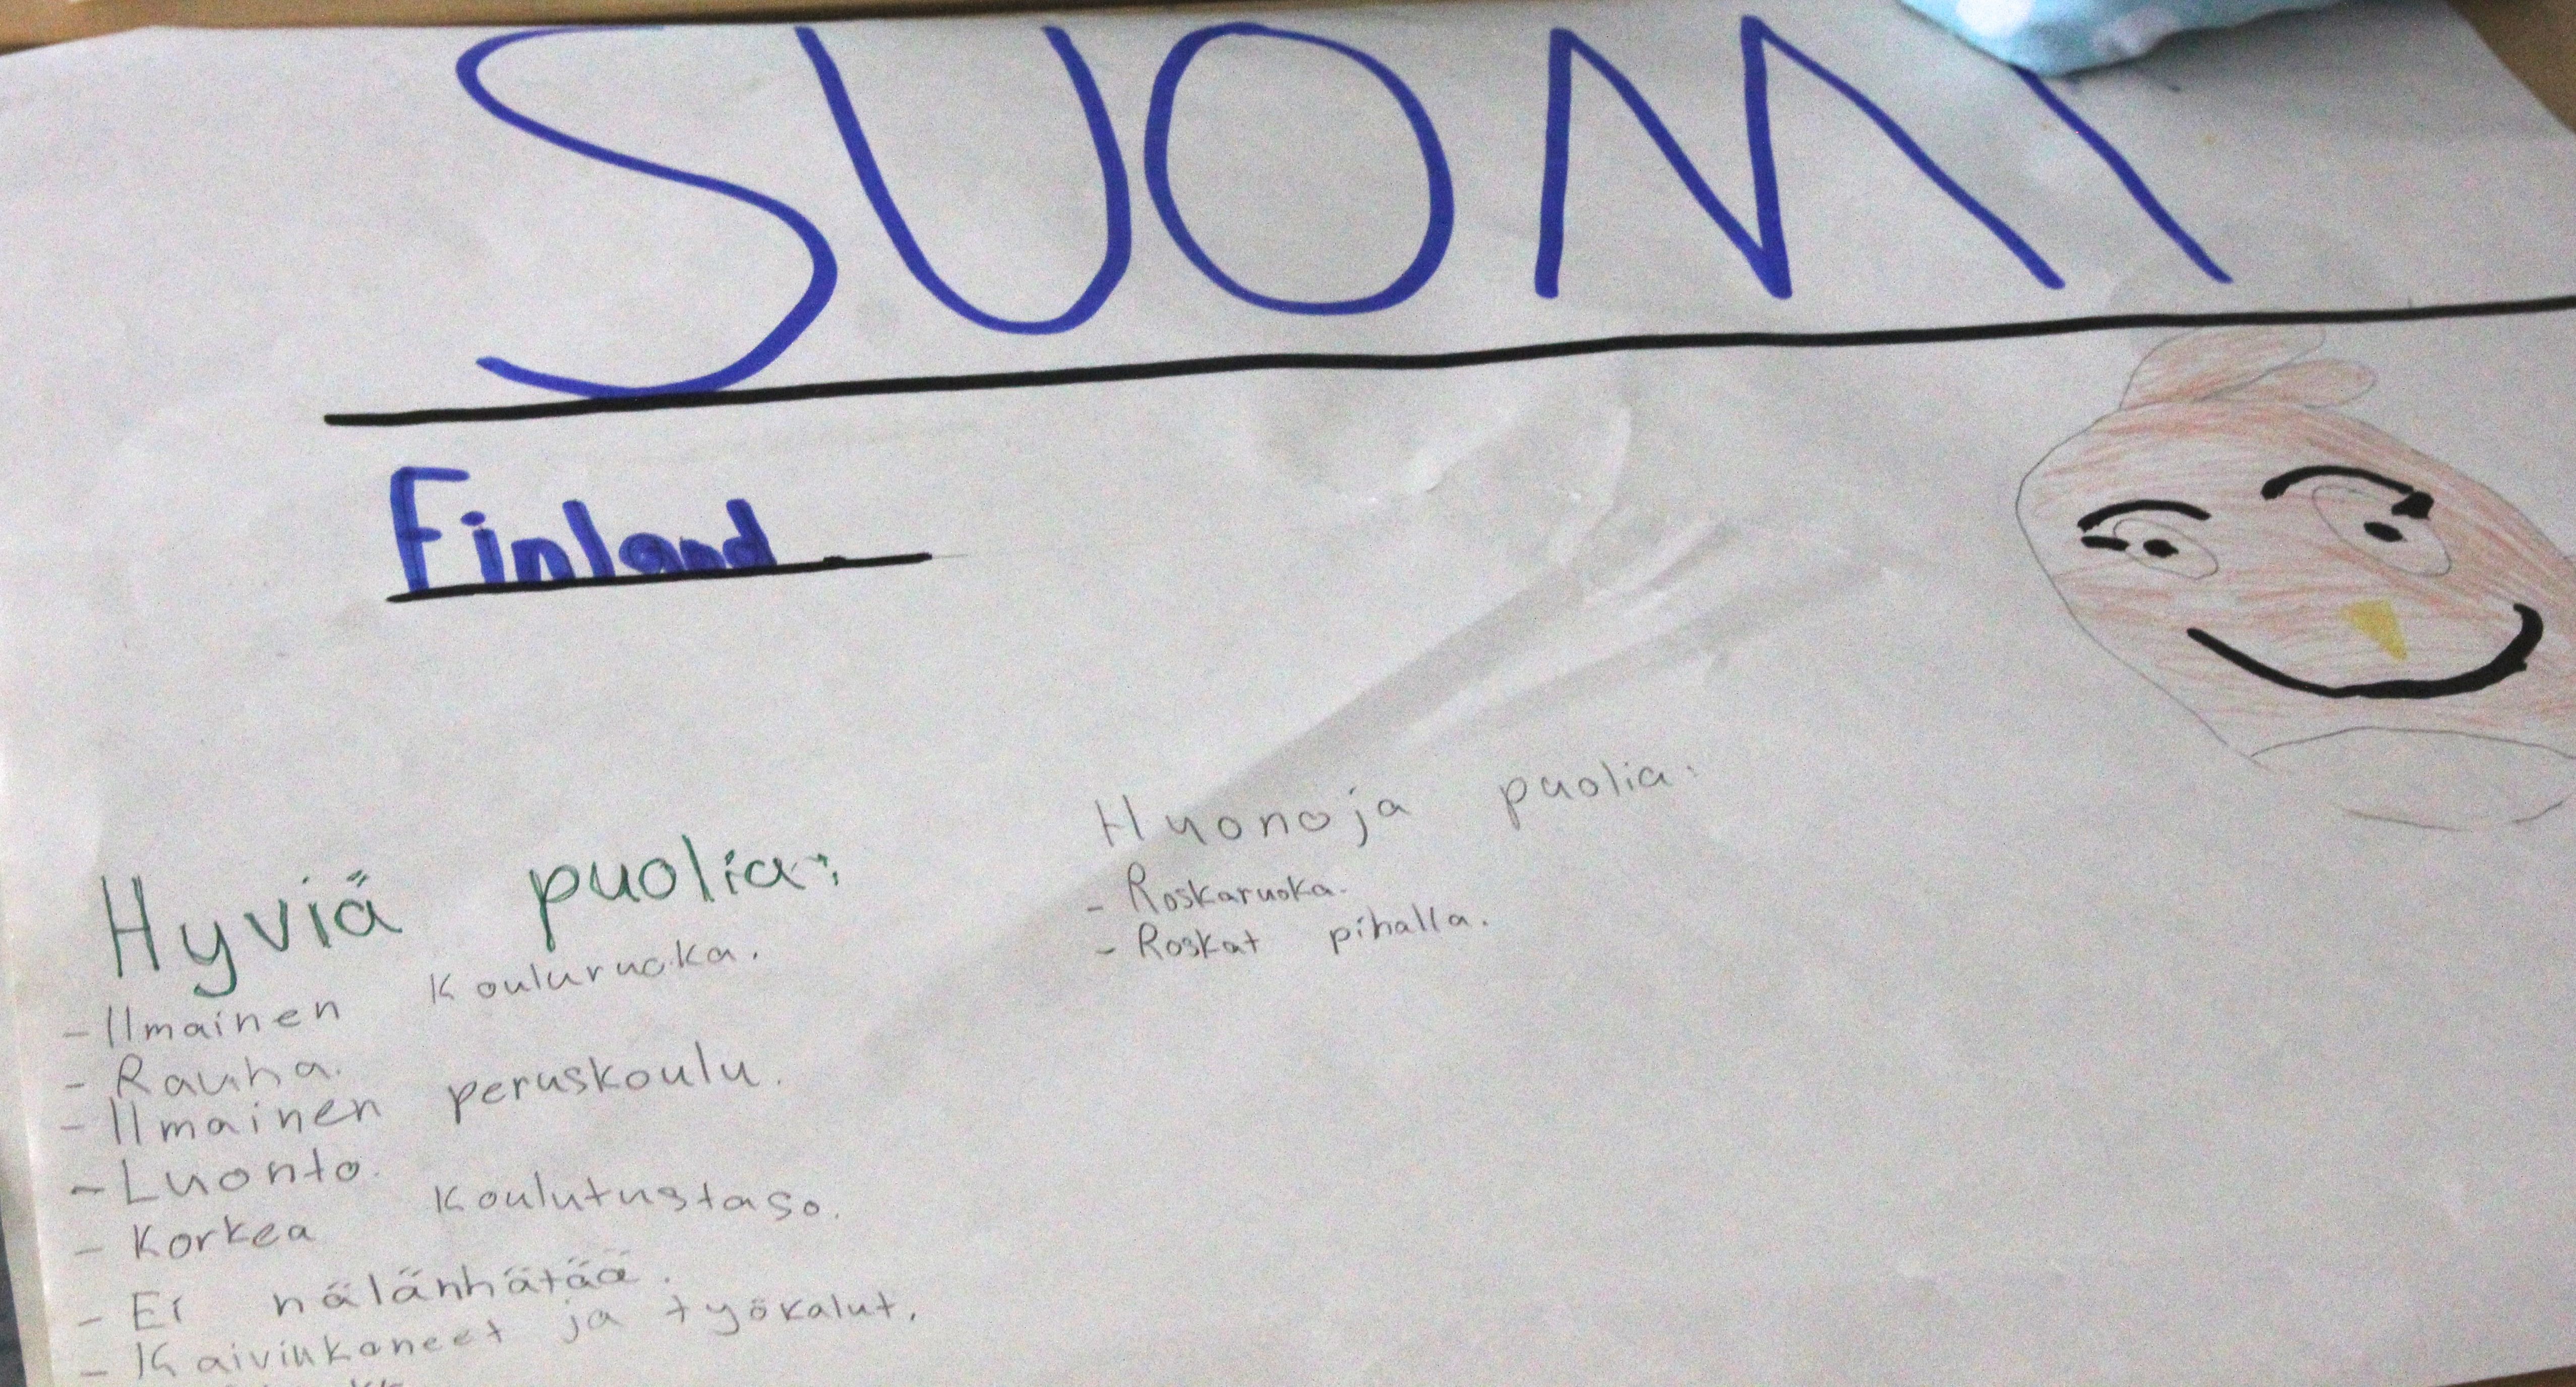 SUOMI
Finland
Hyviä puolia:
- Ilmainen Kouluruoka.
- Rauha.
- Ilmainen peruskoulu.
- Luonto.
- Korkea Koulutustaso.
- Ei nälänhätää.
- Kaivinkoneet ja työkalut.
Huonoja puolia:
- Roskaruoka.
- Roskat pihalla.